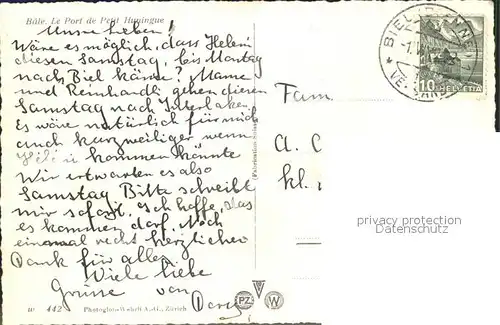 Bâle. Le Port de Petit Huningue
Unsre Lieben!
Wäre es möglich, dass Heleni
diesen Samstag, bis Montag
nach Biel käme? Mame
und Reinhardli gehen diesen
Samstag nach Interlaken,
es wäre natürlich für mich
auch kurzweiliger wenn
Heleni kommen könnte
Wir erwarten es also
Samstag Bitte schreibt
mir sofort. Ich hoffe, das
es kommen darf. Noch
einmal recht herzlichen
Dank für alles.
Viele liebe
Grüsse von
Nr. 442 Photoglob-Wehrli A.-G., Zürich
PZ W
BIEL-BIENNE
10 HELVETIA
Fam.
A. C
kl.
privacy protection
Datenschutz